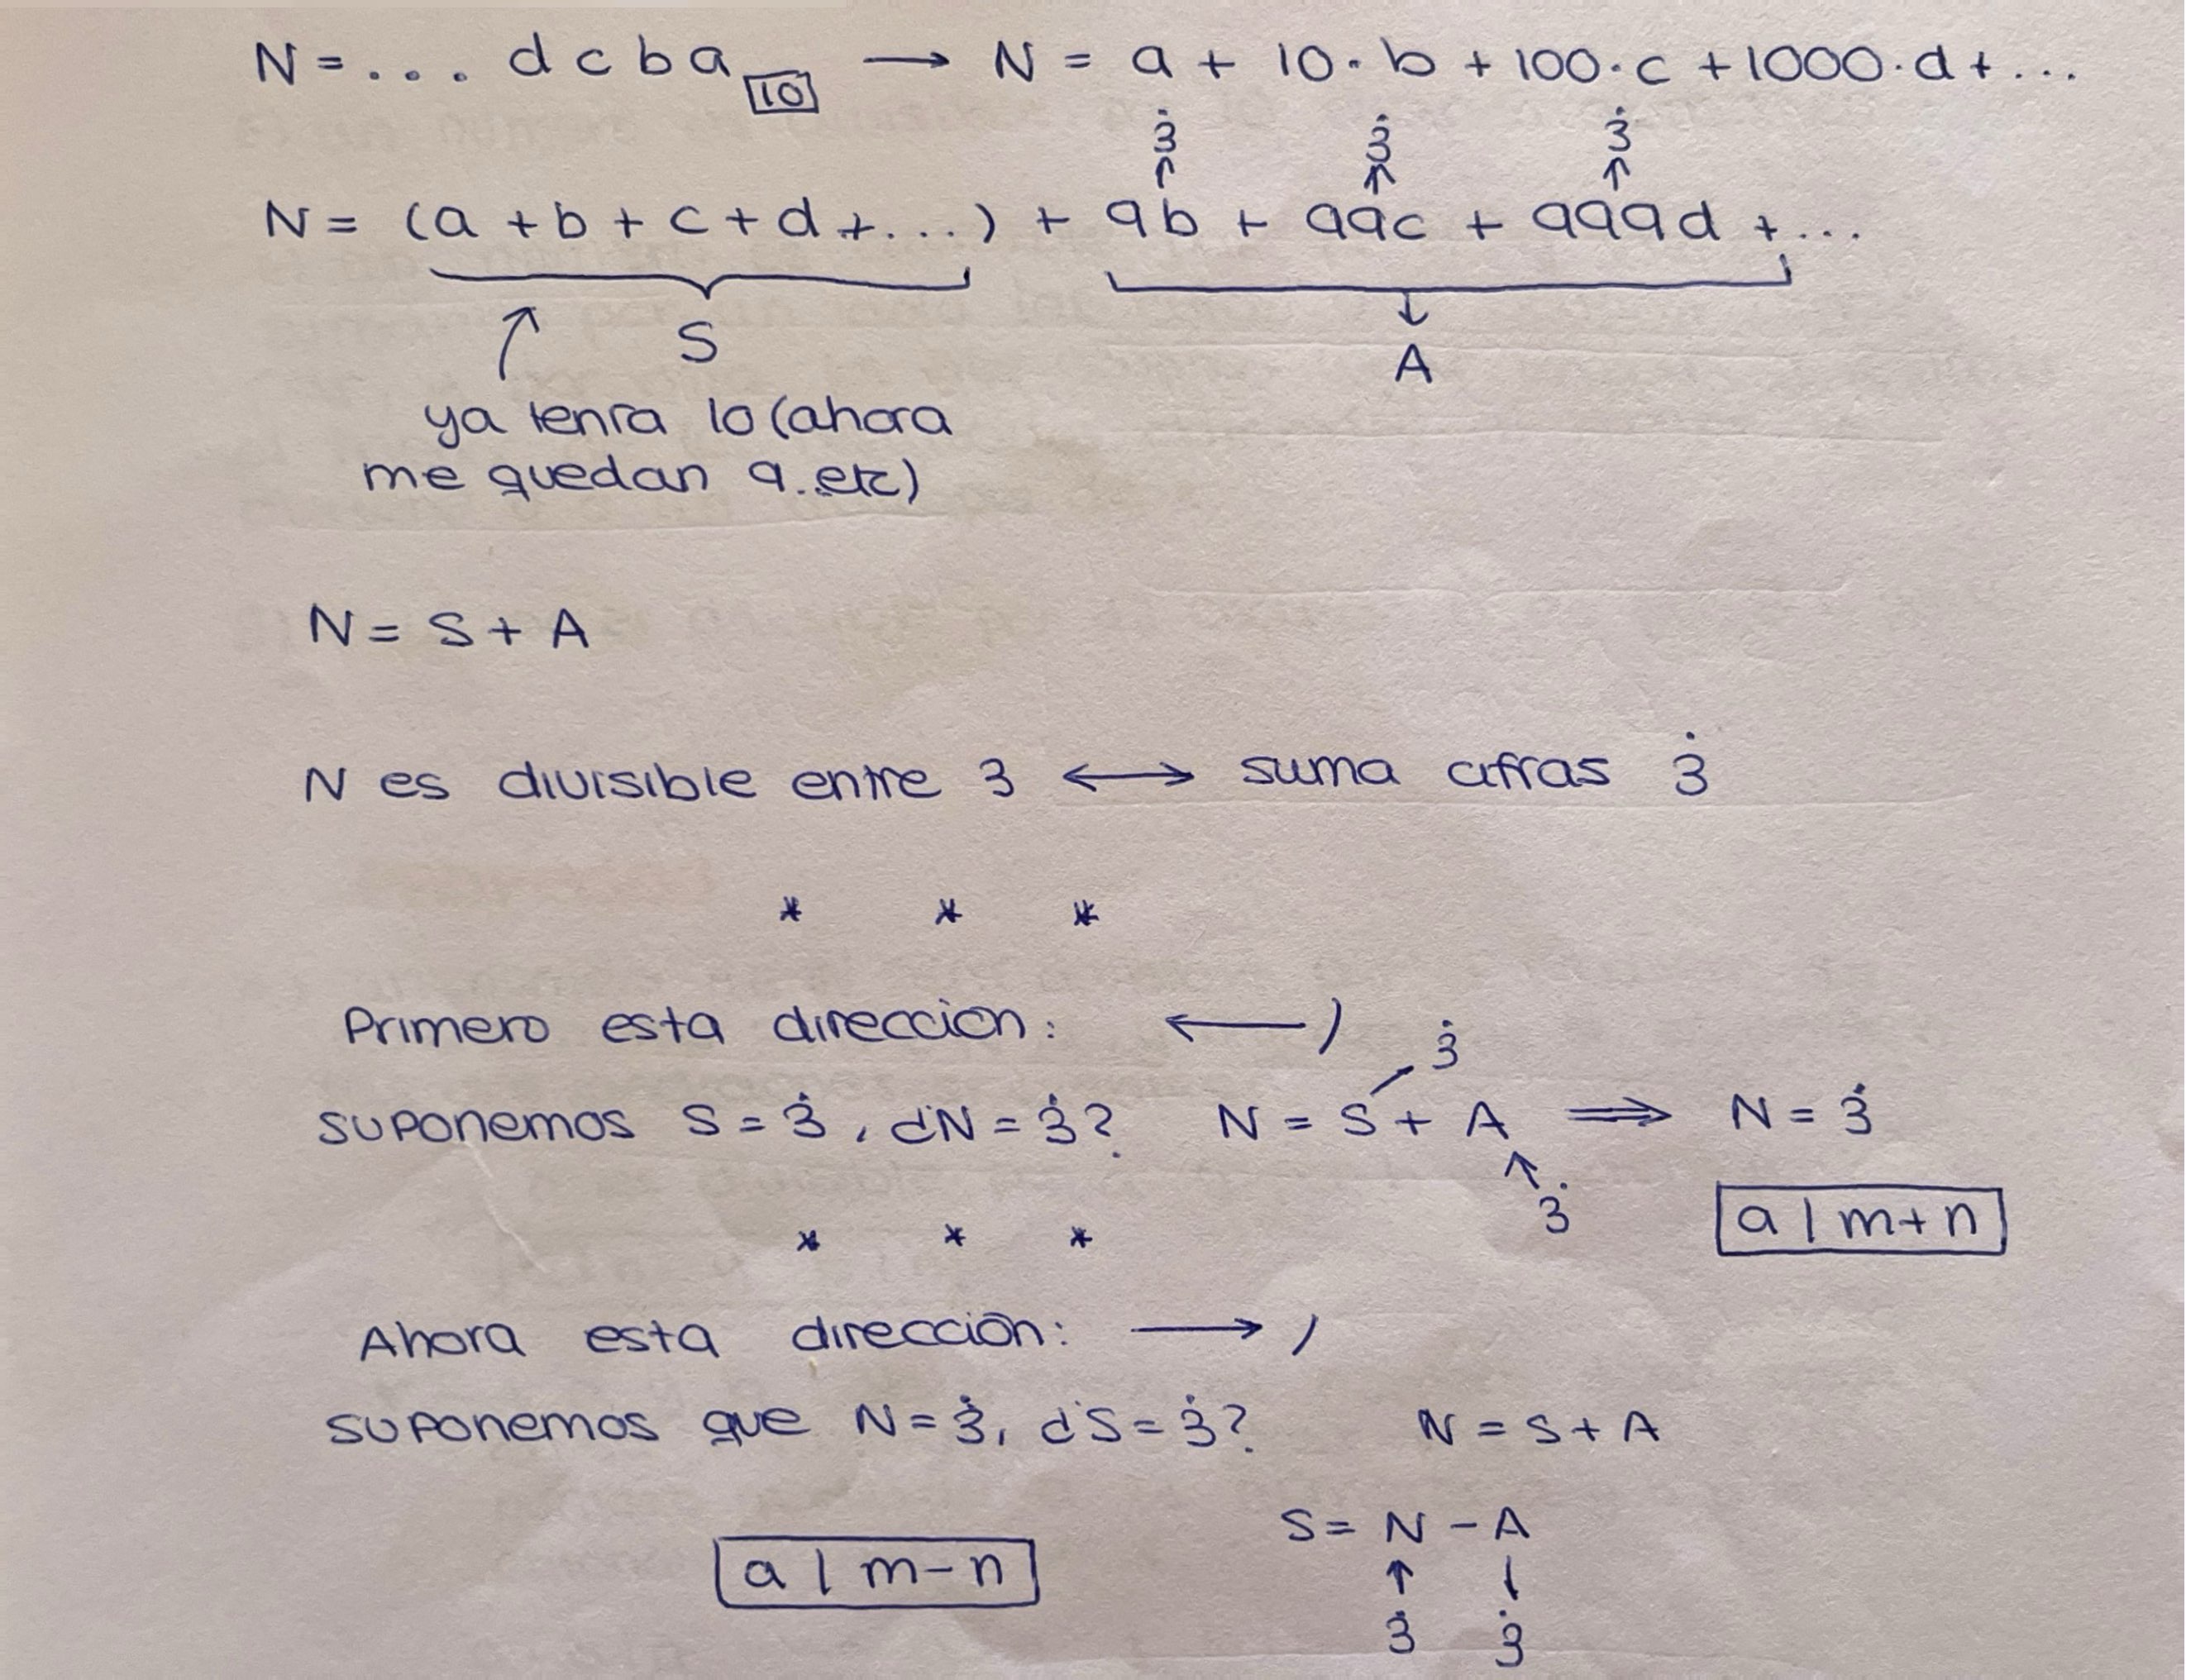 N = ... d c b a 10 → N = a + 10·b + 100·c + 1000·d + ...
3̇ 3̇ 3̇
↑ ↑ ↑
N = (a + b + c + d + ...) + 9b + 99c + 999d + ...
↗ S ↓
A
ya tenía 10 (ahora
me quedan 9..etc)
N = S + A
N es divisible entre 3 ↔ suma cifras 3̇
* * *
Primero esta dirección: ←)
3̇
suponemos S = 3̇, ¿N = 3̇? N = S + A ⇒ N = 3̇
↑
3̇ a | m+n
* * *
Ahora esta dirección: → )
suponemos que N = 3̇, ¿S = 3̇? N = S + A
S = N - A
a | m-n ↑ ↓
3̇ 3̇